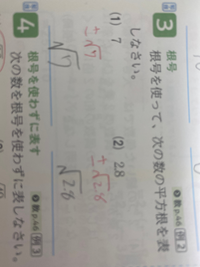 3 根号 教p.46 例2
根号を使って、次の数の平方根を表
しなさい。
(1) 7
(2) 2.8
±√7
±√2.8
√7
√2.8
4 根号を使わずに表す 教p.46 例3
次の数を根号を使わずに表しなさい。